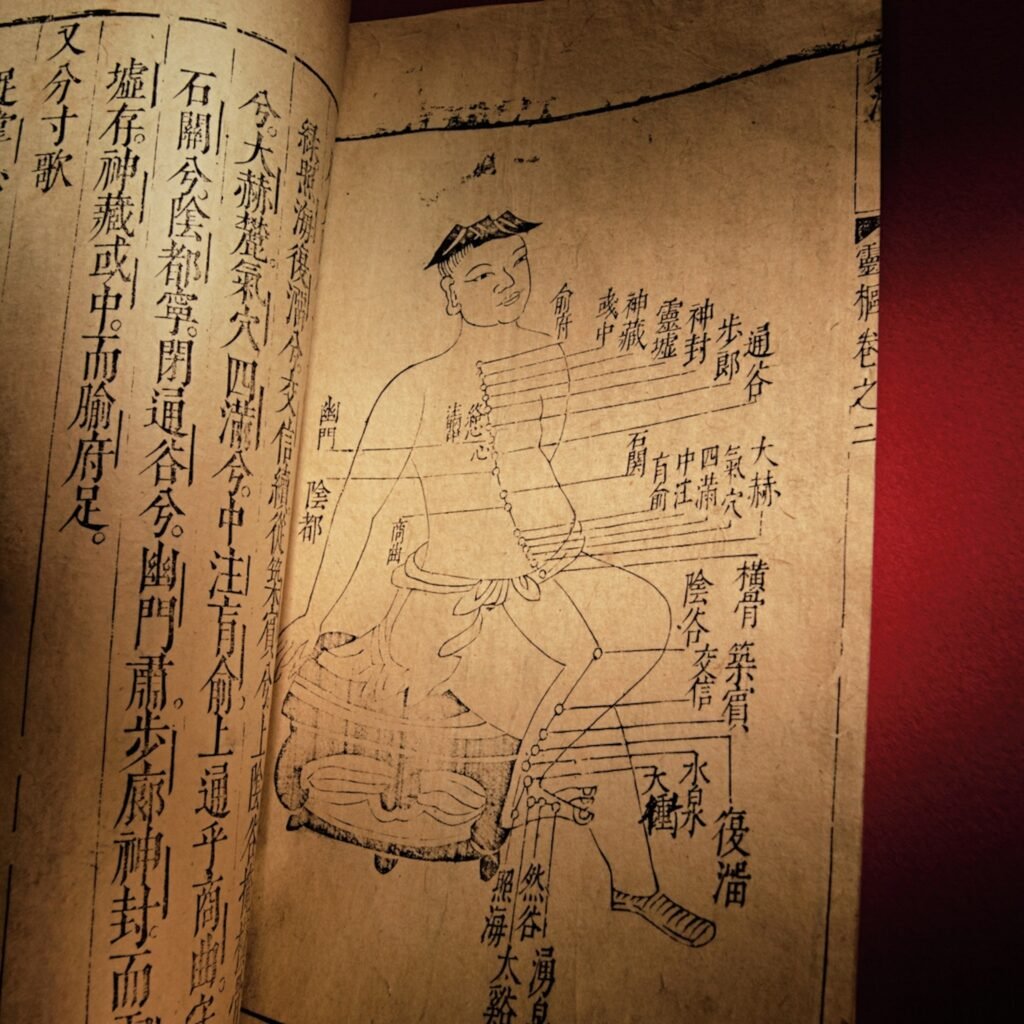 靈樞卷之二
通谷
步郎
神封
靈墟
神藏
或中
俞府
大赫
氣穴
四滿
中注
肓俞
石關
幽門
陰都
商曲
橫骨
陰谷
築賓
交信
水泉
大鍾
復溜
然谷
照海
太谿
湧泉
照海復溜兮交信續從築賓兮上陰谷
兮。大赫麓氣穴四滿兮。中注肓俞上通乎商曲。
石關兮。陰都寧。閉通谷兮。幽門肅。步廊神封。而
墟存。神藏或中。而腧府足。
又分寸歌